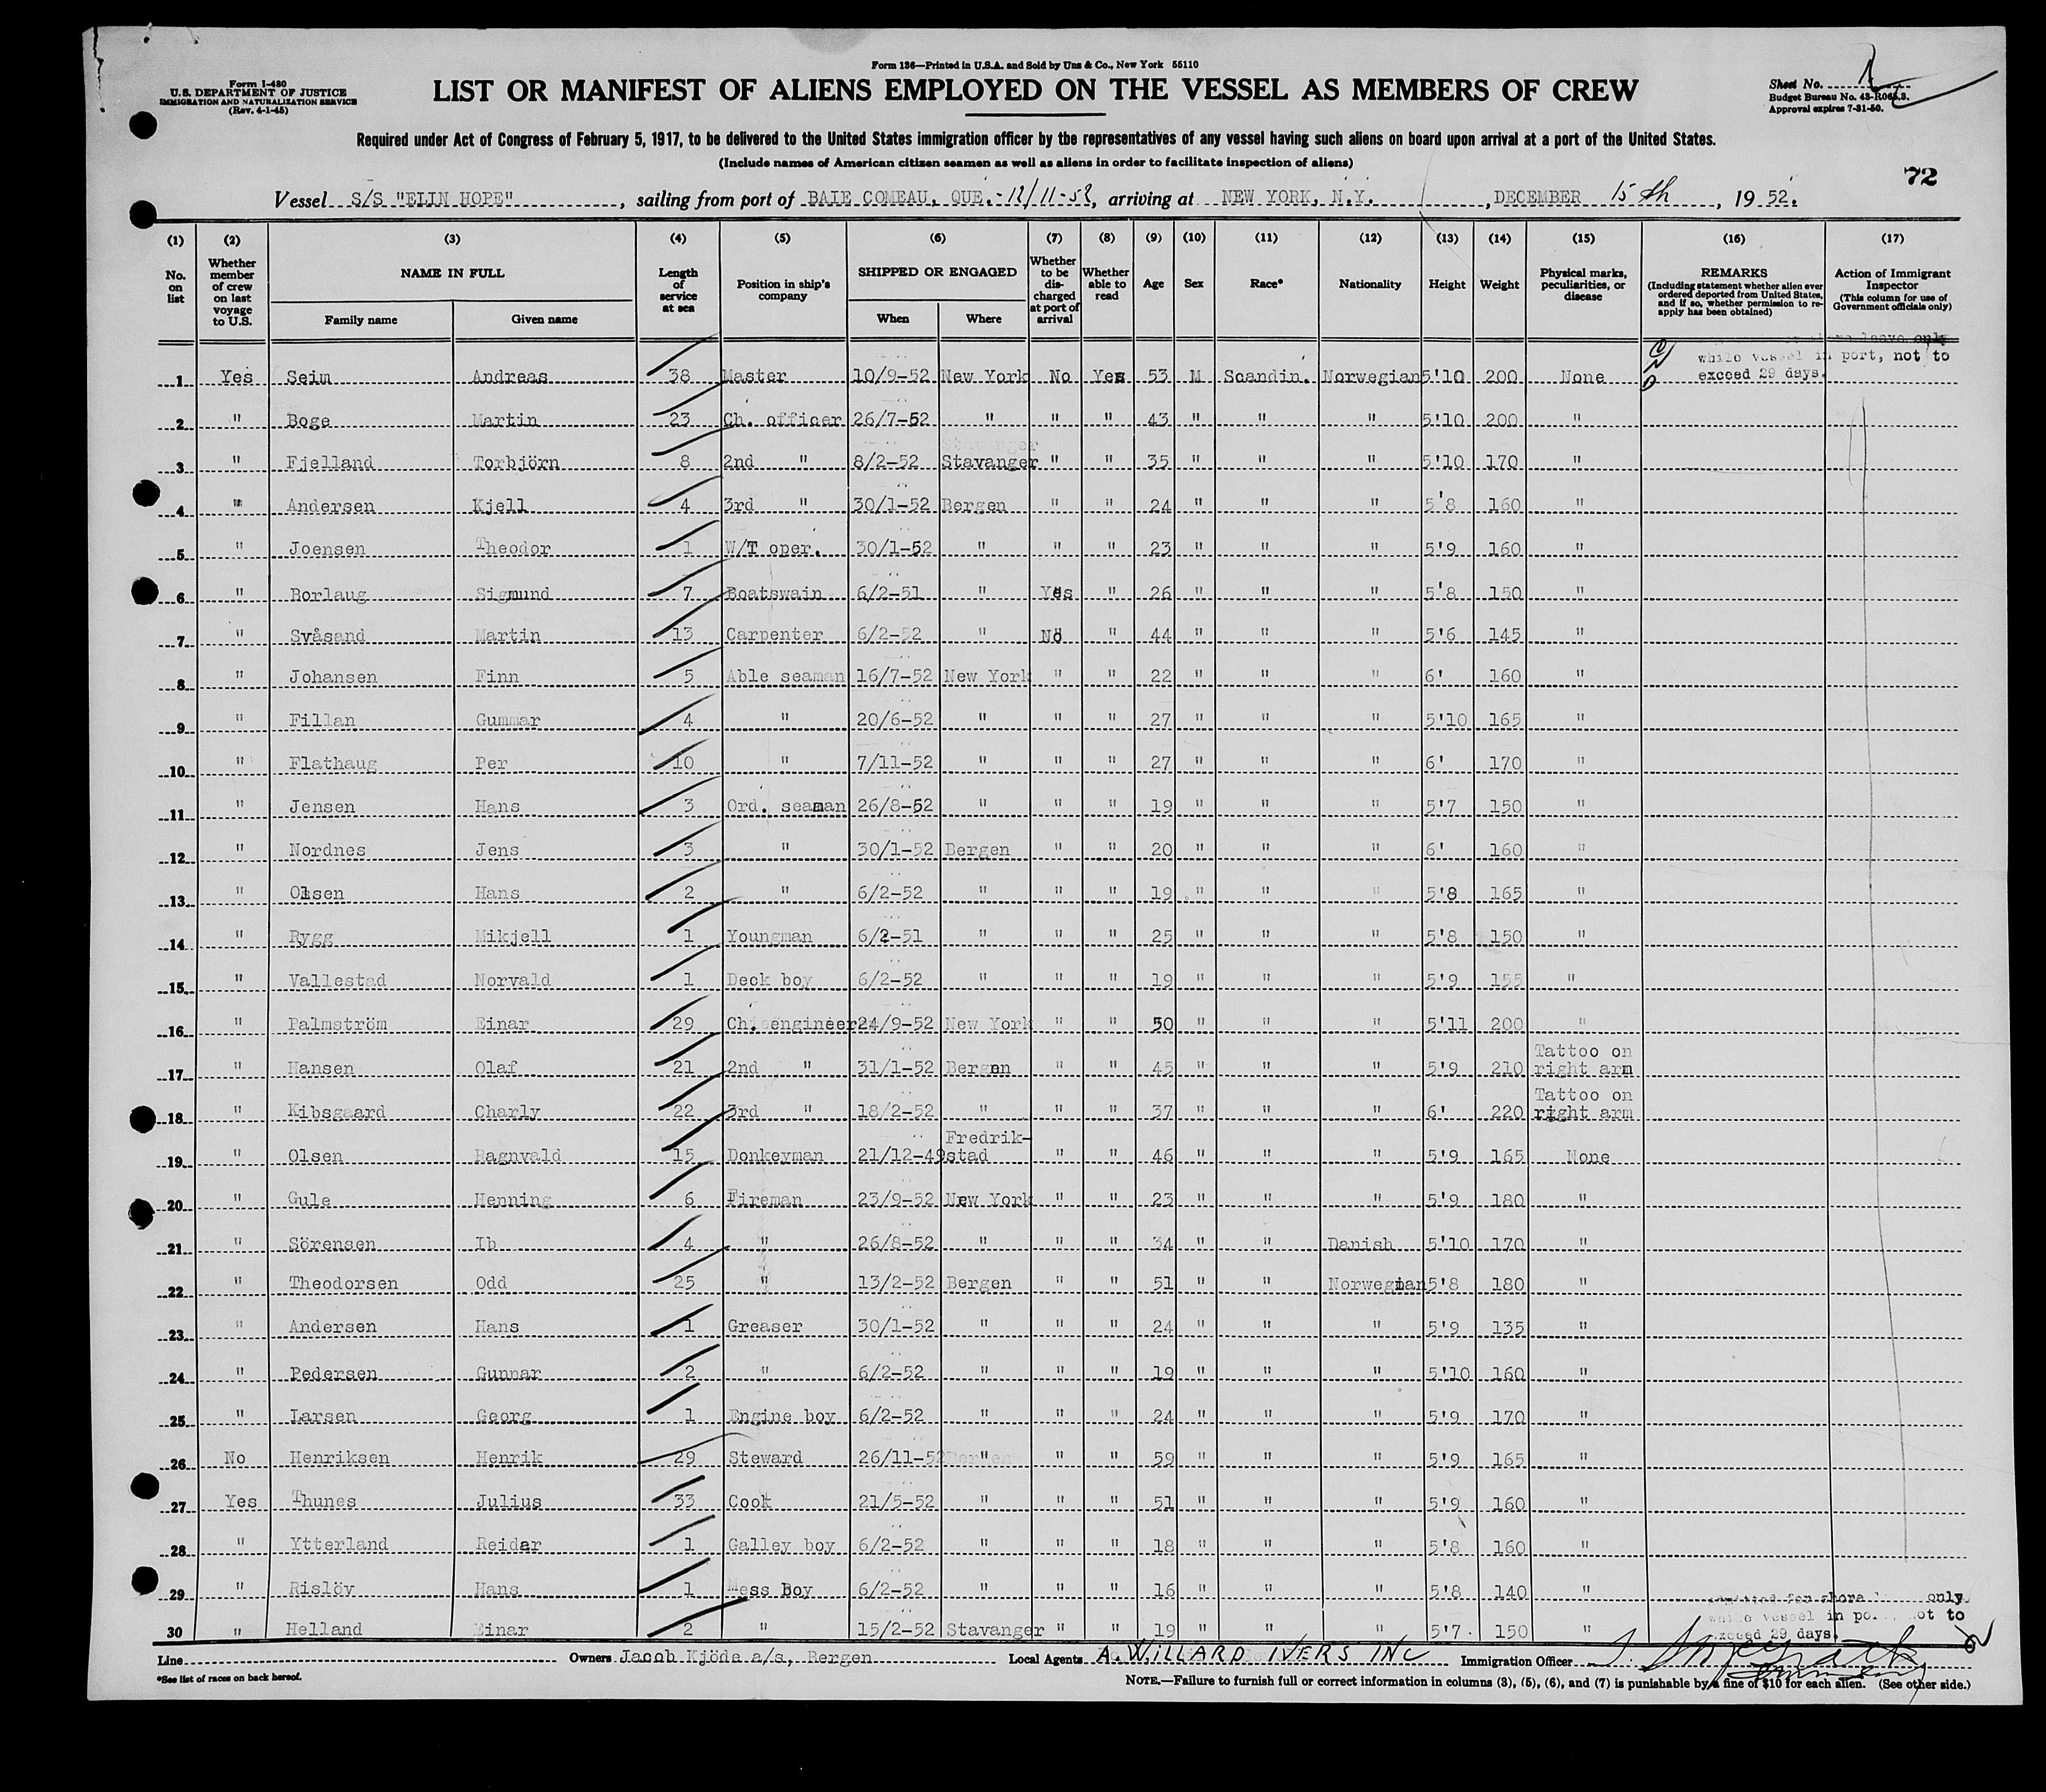 Form 136—Printed in U.S.A. and Sold by Unz & Co., New York 55110
Form I-480
U.S. DEPARTMENT OF JUSTICE
IMMIGRATION AND NATURALIZATION SERVICE
(Rev. 4-1-45)
LIST OR MANIFEST OF ALIENS EMPLOYED ON THE VESSEL AS MEMBERS OF CREW
Sheet No.
Budget Bureau No. 43-R065.3.
Approval expires 7-31-50.
Required under Act of Congress of February 5, 1917, to be delivered to the United States immigration officer by the representatives of any vessel having such aliens on board upon arrival at a port of the United States.
(Include names of American citizen seamen as well as aliens in order to facilitate inspection of aliens)
72
Vessel S/S "ELIN HOPE", sailing from port of BAIE COMEAU, QUE.-12/11-52, arriving at NEW YORK, N.Y., DECEMBER 15th, 1952.
(1) (2) (3) (4) (5) (6) (7) (8) (9) (10) (11) (12) (13) (14) (15) (16) (17)
No. on list
Whether member of crew on last voyage to U.S.
NAME IN FULL
Family name Given name
Length of service at sea
Position in ship's company
SHIPPED OR ENGAGED
When Where
Whether to be discharged at port of arrival
Whether able to read
Age
Sex
Race*
Nationality
Height
Weight
Physical marks, peculiarities, or disease
REMARKS
(Including statement whether alien ever ordered deported from United States, and if so, whether permission to reapply has been obtained)
Action of Immigrant Inspector
(This column for use of Government officials only)
leave only
while vessel in port, not to
exceed 29 days.
1 Yes Seim Andreas 38 Master 10/9-52 New York No Yes 53 M Scandin. Norwegian 5'10 200 None
2 " Boge Martin 23 Ch. officer 26/7-52 " " " 43 " " " 5'10 200 "
3 " Fjelland Torbjörn 8 2nd " 8/2-52 Stavanger " " 35 " " " 5'10 170 "
4 " Andersen Kjell 4 3rd " 30/1-52 Bergen " " 24 " " " 5'8 160 "
5 " Joensen Theodor 1 W/T oper. 30/1-52 " " " 23 " " " 5'9 160 "
6 " Borlaug Sigmund 7 Boatswain 6/2-51 " Yes " 26 " " " 5'8 150 "
7 " Svåsand Martin 13 Carpenter 6/2-52 " No " 44 " " " 5'6 145 "
8 " Johansen Finn 5 Able seaman 16/7-52 New York " " 22 " " " 6' 160 "
9 " Fillan Gummar 4 " 20/6-52 " " " 27 " " " 5'10 165 "
10 " Flathaug Per 10 " 7/11-52 " " " 27 " " " 6' 170 "
11 " Jensen Hans 3 Ord. seaman 26/8-52 " " " 19 " " " 5'7 150 "
12 " Nordnes Jens 3 " 30/1-52 Bergen " " 20 " " " 6' 160 "
13 " Olsen Hans 2 " 6/2-52 " " " 19 " " " 5'8 165 "
14 " Rygg Mikjell 1 Youngman 6/2-51 " " " 25 " " " 5'8 150 "
15 " Vallestad Norvald 1 Deck boy 6/2-52 " " " 19 " " " 5'9 155 "
16 " Palmström Einar 29 Ch. engineer 24/9-52 New York " " 50 " " " 5'11 200 "
17 " Hansen Olaf 21 2nd " 31/1-52 Bergen " " 45 " " " 5'9 210 Tattoo on right arm
18 " Kibsgaard Charly 22 3rd " 18/2-52 " " " 37 " " " 6' 220 Tattoo on right arm
19 " Olsen Ragnvald 15 Donkeyman 21/12-49 Fredrik-stad " " 46 " " " 5'9 165 None
20 " Gule Henning 6 Fireman 23/9-52 New York " " 23 " " " 5'9 180 "
21 " Sörensen Ib 4 " 26/8-52 " " " 34 " " Danish 5'10 170 "
22 " Theodorsen Odd 25 " 13/2-52 Bergen " " 51 " " Norwegian 5'8 180 "
23 " Andersen Hans 1 Greaser 30/1-52 " " " 24 " " " 5'9 135 "
24 " Pedersen Gunnar 2 " 6/2-52 " " " 19 " " " 5'10 160 "
25 " Larsen Georg 1 Engine boy 6/2-52 " " " 24 " " " 5'9 170 "
26 No Henriksen Henrik 29 Steward 26/11-52 " " " 59 " " " 5'9 165 "
27 Yes Thunes Julius 33 Cook 21/5-52 " " " 51 " " " 5'9 160 "
28 " Ytterland Reidar 1 Galley boy 6/2-52 " " " 18 " " " 5'8 160 "
29 " Rislöv Hans 1 Mess Boy 6/2-52 " " " 16 " " " 5'8 140 "
30 " Helland Einar 2 " 15/2-52 Stavanger " " 19 " " " 5'7 150 "
admitted for shore only
while vessel in port, not to
exceed 29 days.
Line Owners Jacob Kjöde a/s, Bergen Local Agents A. WILLARD IVERS INC Immigration Officer
*See list of races on back hereof.
NOTE.—Failure to furnish full or correct information in columns (3), (5), (6), and (7) is punishable by a fine of $10 for each alien. (See other side.)